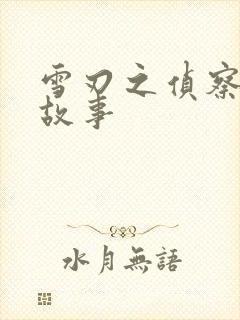 雪刃之偵察
故事
水月無語